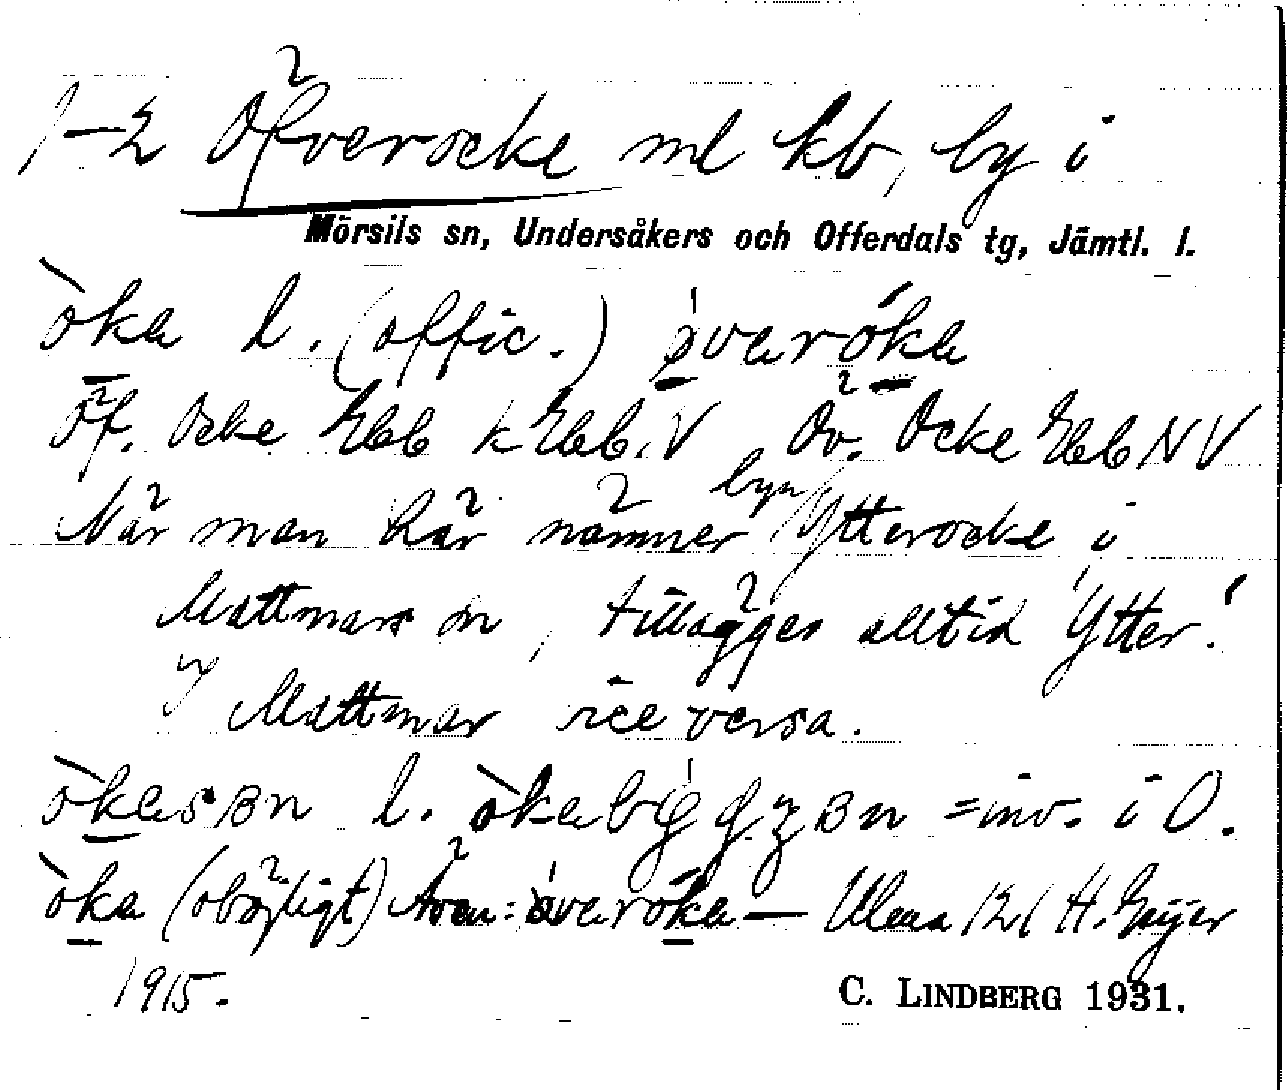 1–2 Öfverocke ml kb, by i
Mörsils sn, Undersåkers och Offerdals tg, Jämtl. l.
òka l. (offic.) øveróka
Öf. Ocke k V Öv. Ocke NV
När man här nämner byn Ytterocke i
Mattmars sn, tillägges alltid 'Ytter'.
I Mattmar vice versa.
òkasʙn l. òkabyggʙn = inv. i O.
òka (oböjligt) Även: øveróka — Ulma 121 H. Geijer
1915.
C. LINDBERG 1931.